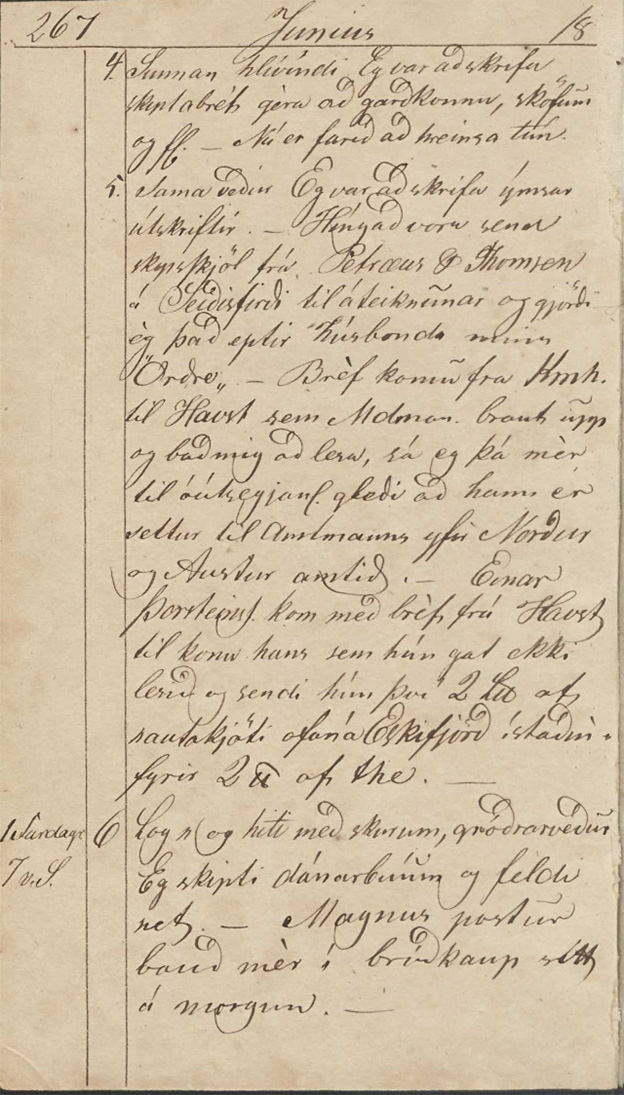 267 Junius 18
4. Sunnan hlívindi Eg var að skrifa
skiptabréf gèra að garðkonnu, sköfum
og fl. — Nú er farið að hreinsa tún.
5. Sama veður Eg var að skrifa ýmsar
útskriftir. — Híngað voru send
skipsskjöl frá Petræus & Thomsen
á Seidisfirði til áteiknunar og gjörði
èg það eptir húsbonda mins
"Ordre„ — Brèf komu fra Kmh.
til Havst sem Mdman. braut upp
og bað mig að lesa, sá eg þá mèr
til óútsegjanl. gleði að hann er
settur til Amtmanns yfir Norður
og Austur amtið. — Einar
Þorsteinss. kom með brèf frá Havst
til konu hans sem hún gat ekki
lesið og sendi hún því 2 ℔ af
nautakjöti ofaná Eskifjörð ístaðin
fyrir 2 ℔ af the. —
1 Sardage 6 Logn og hiti með skurum, gróðrarveður
7 v. S. Eg skipti dánarbúum og feldi
net. — Magnus postur
bauð mèr í brúðkaup sitt
á morgun. —